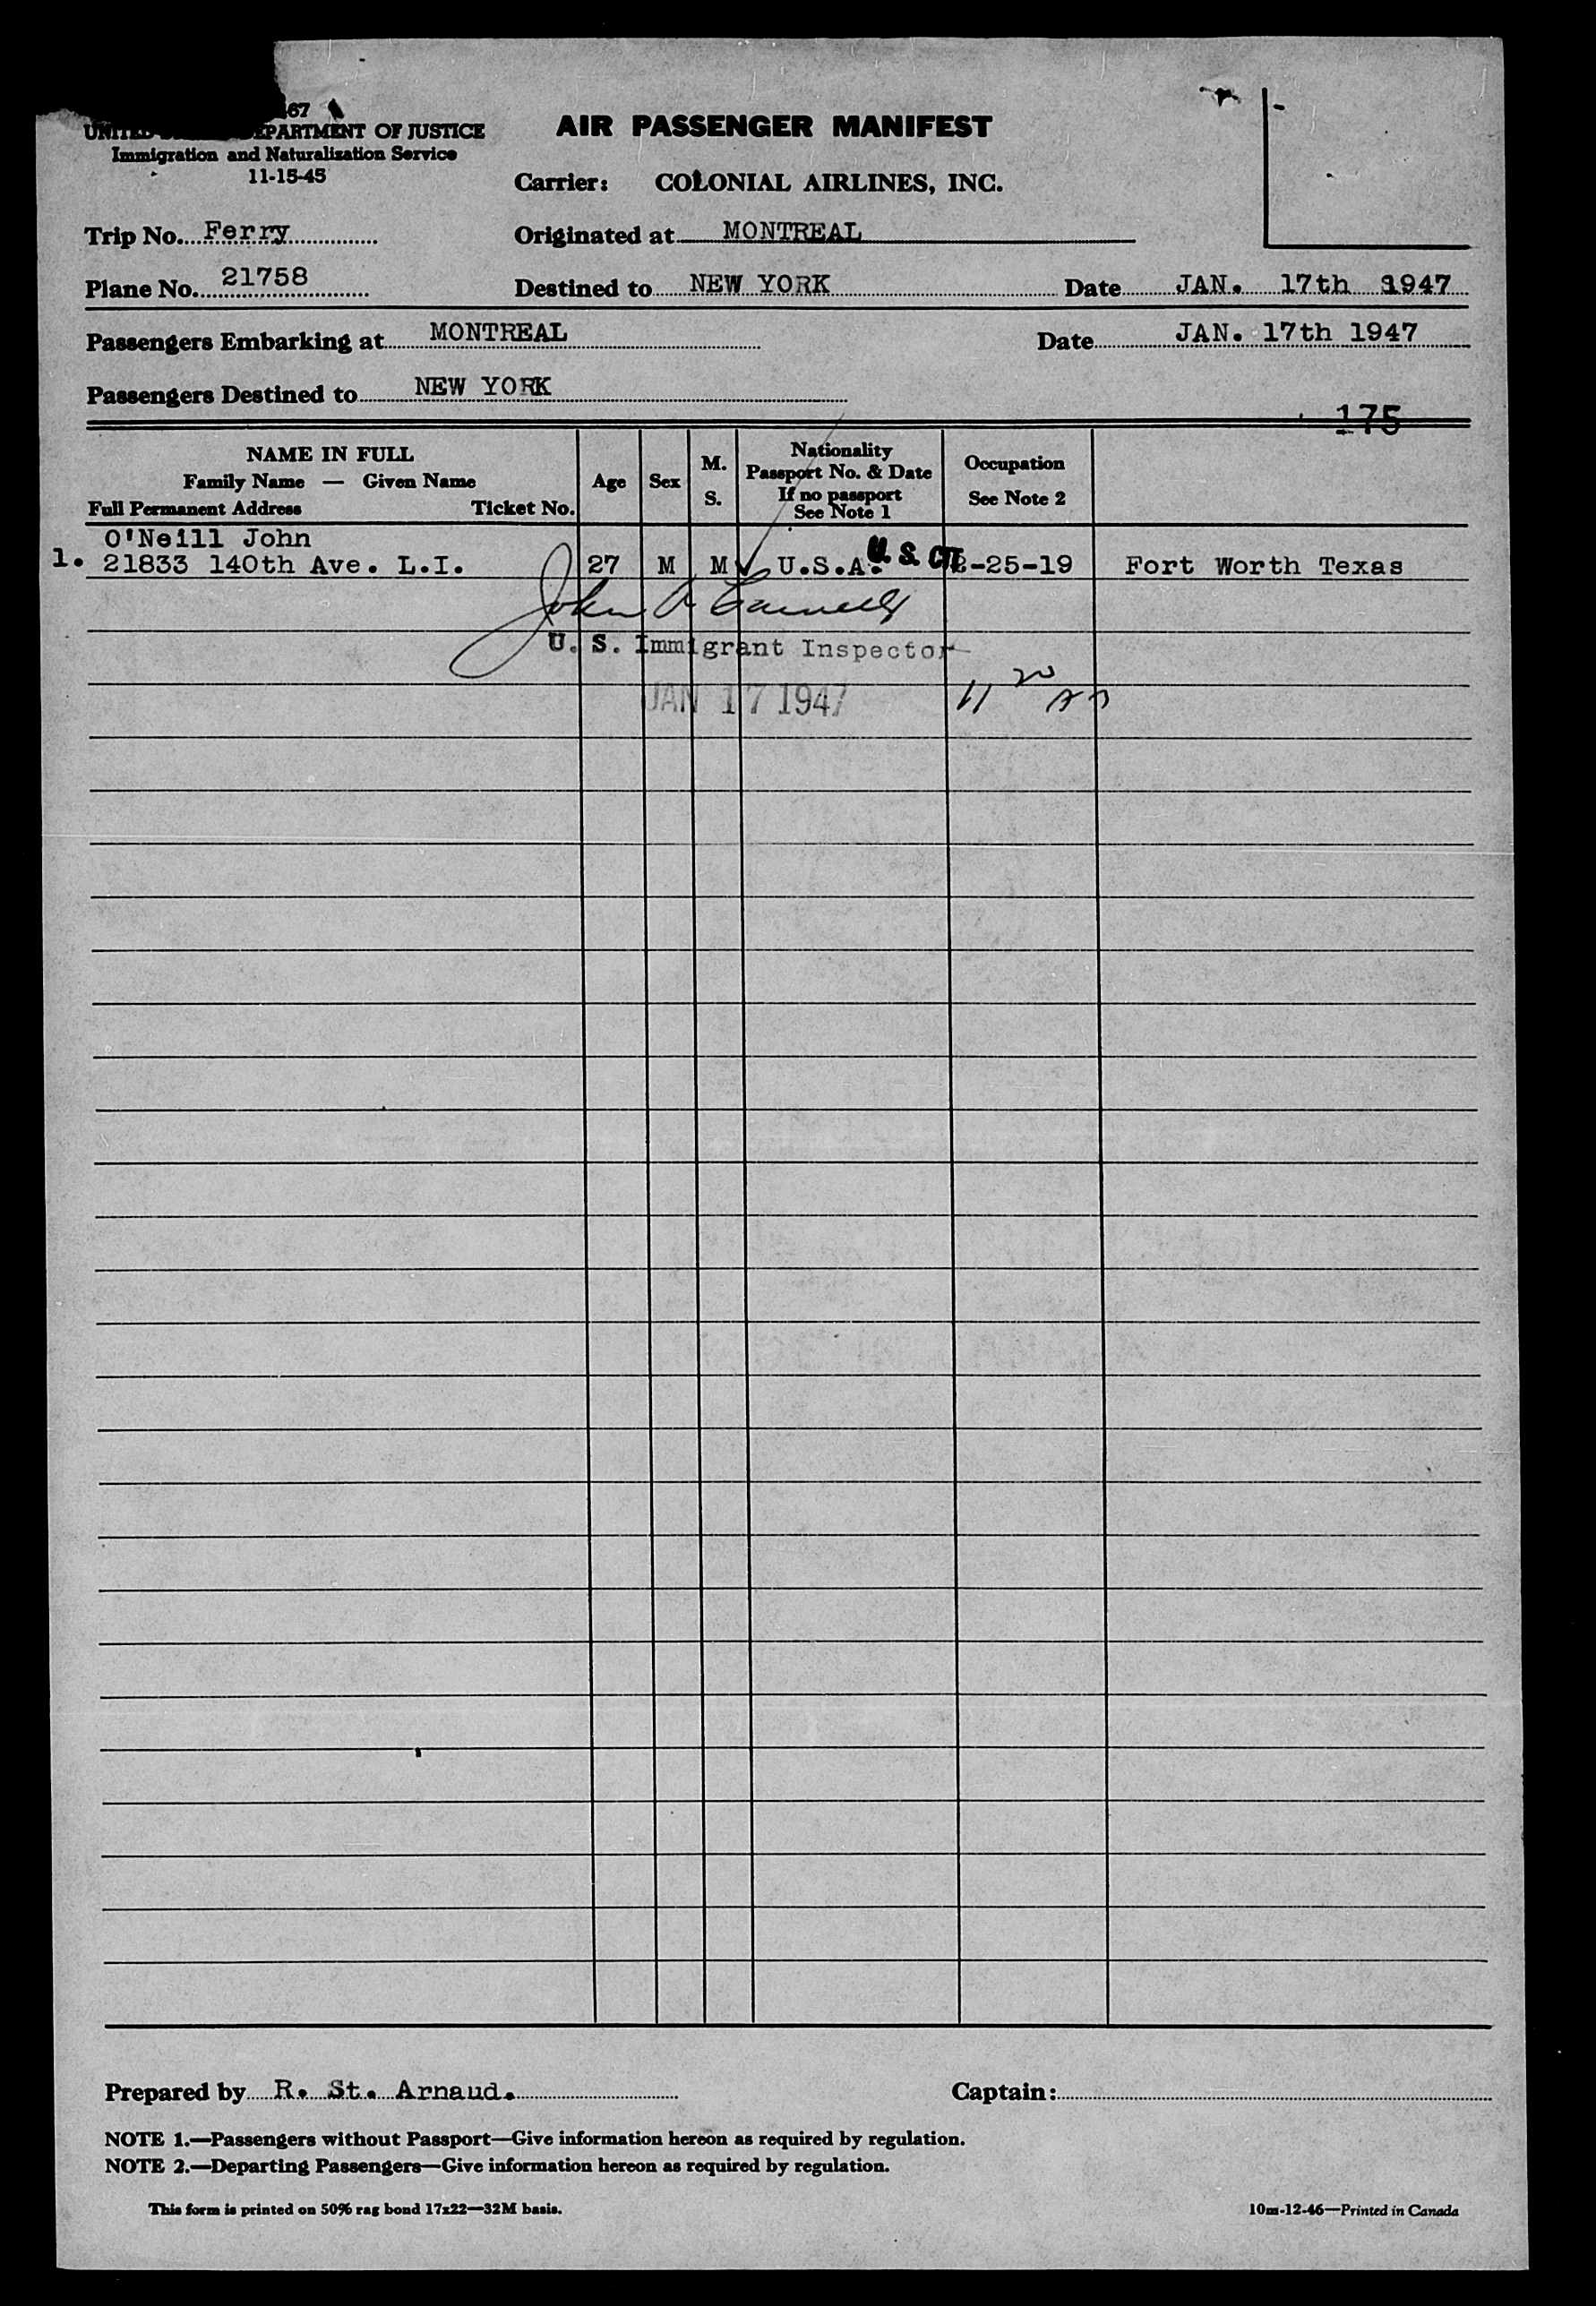 67
UNITED DEPARTMENT OF JUSTICE
Immigration and Naturalization Service
11-15-45
AIR PASSENGER MANIFEST
Carrier: COLONIAL AIRLINES, INC.
Trip No. Ferry
Originated at MONTREAL
Plane No. 21758
Destined to NEW YORK
Date JAN. 17th 1947
Passengers Embarking at MONTREAL
Date JAN. 17th 1947
Passengers Destined to NEW YORK
175
NAME IN FULL
Family Name — Given Name
Full Permanent Address Ticket No.
Age
Sex
M.
S.
Nationality
Passport No. & Date
If no passport
See Note 1
Occupation
See Note 2
O'Neill John
1. 21833 140th Ave. L.I. 27 M M U.S.A. U.S. CIT -25-19 Fort Worth Texas
John
U. S. Immigrant Inspector
JAN 17 1947 11 20
Prepared by R. St. Arnaud.
Captain:
NOTE 1.—Passengers without Passport—Give information hereon as required by regulation.
NOTE 2.—Departing Passengers—Give information hereon as required by regulation.
This form is printed on 50% rag bond 17x22—32M basis.
10m-12-46—Printed in Canada